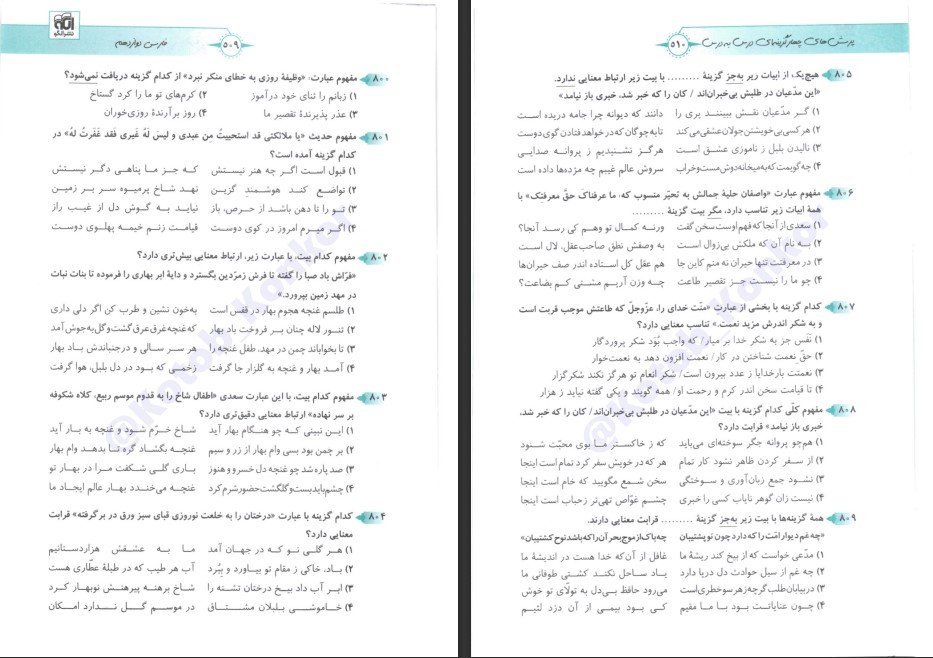 ۵۰۹
فارسی دوازدهم
۸۰۰ مفهوم عبارت، «وظیفهٔ روزی به خطای منکر نبرد» از کدام گزینه دریافت نمی‌شود؟
۱) زبانم را ثنای خود درآموز ۲) کرم‌های تو ما را کرد گستاخ
۳) عذر پذیرندهٔ تقصیر ما ۴) روز برآرندهٔ روزی‌خوران
۸۰۱ مفهوم حدیث «یا ملائکتی قد استحییتُ مِن عبدی و لیسَ لَهُ غیری فَقد غَفَرتُ لهُ» در
کدام گزینه آمده است؟
۱) قبول است اگرچه هنر نیستش که جز ما پناهی دگر نیستش
۲) تواضع کند هوشمند گزین نهد شاخ پرمیوه سر بر زمین
۳) تو را تا دهن باشد از حرص، باز نیاید به گوش دل از غیب راز
۴) اگر میرم امروز در کوی دوست قیامت زنم خیمه پهلوی دوست
۸۰۲ مفهوم کدام بیت، با عبارت زیر، ارتباط معنایی بیش‌تری دارد؟
«فرّاش باد صبا را گفته تا فرش زمرّدین بگسترد و دایهٔ ابر بهاری را فرموده تا بنات نبات
در مهد زمین بپرورد.»
۱) طلسم غنچه هجوم بهار در قفس است به‌خون نشین و طرب کن اگر دلی داری
۲) تنور لاله چنان بر فروخت باد بهار که غنچه غرق عرق گشت و گل به‌جوش آمد
۳) تا بخواباند چمن در مهد، طفل غنچه را هر سر سالی و درجنباندش باد بهار
۴) آمد بهار و غنچه به گلزار جا گرفت زخمی که بود در دل بلبل، هوا گرفت
۸۰۳ مفهوم کدام بیت، با این عبارت سعدی «اطفال شاخ را به قدوم موسم ربیع، کلاه شکوفه
بر سر نهاده» ارتباط معنایی دقیق‌تری دارد؟
۱) این نبینی که چو هنگام بهار آید شاخ خرّم شود و غنچه به بار آید
۲) بر چمن بود بسی وام بهار از زر و سیم غنچه بگشاد گره تا بدهد وام بهار
۳) صد پاره شد چو غنچه دل خسرو و هنوز باری گلی شکفت مرا در بهار تو
۴) چشم‌باید بست و گلگشت حضور شرم کرد غنچه می‌خندد بهار عالم ایجاد ما
۸۰۴ کدام گزینه با عبارت «درختان را به خلعت نوروزی قبای سبز ورق در برگرفته» قرابت
معنایی دارد؟
۱) هر گلی نو که در جهان آمد ما به عشقش هزاردستانیم
۲) باد، خاکی ز مقام تو بیاورد و ببُرد آب هر طیب که در طبلهٔ عطّاری هست
۳) ابر آب داد بیخ درختان تشنه را شاخ برهنه پیرهنش نوبهار کرد
۴) خاموشی بلبلان مشتاق در موسم گل ندارد امکان
۵۱۰
پرسش‌های چهارگزینه‌ای درس به درس
۸۰۵ هیچ‌یک از ابیات زیر به‌جز گزینهٔ ......... با بیت زیر ارتباط معنایی ندارد.
«این مدّعیان در طلبش بی‌خبران‌اند / کان را که خبر شد، خبری باز نیامد»
۱) گر مدّعیان نقش ببینند پری را دانند که دیوانه چرا جامه دریده است
۲) هر کسی بی‌خویشتن جولان عشقی می‌کند تا به چوگان که در خواهد فتادن گوی دوست
۳) نالیدن بلبل ز نوآموزی عشق است هرگز نشنیدیم ز پروانه صدایی
۴) چه گویمت که به میخانه دوش مست و خراب سروش عالم غیبم چه مژده‌ها داده است
۸۰۶ مفهوم عبارت «واصفان حلیهٔ جمالش به تحیّر منسوب که، ما عرفناک حقّ معرفتک» با
همهٔ ابیات زیر تناسب دارد، مگر بیت گزینهٔ .........
۱) سعدی از آنجا که فهم اوست سخن گفت ورنه کمال تو وهم کی رسد آنجا؟
۲) به نام آن که ملکش بی‌زوال است به وصفش نطق صاحب‌عقل، لال است
۳) در معرفتت تنها حیران نه منم کاین جا هم عقل کل استاده اندر صف حیران‌ها
۴) چو ما را نیست جز تقصیر طاعت چه وزن آریم مشتی کم بضاعت؟
۸۰۷ کدام گزینه با بخشی از عبارت «منّت خدای را، عزّوجلّ که طاعتش موجب قربت است
و به شکر اندرش مزید نعمت.» تناسب معنایی دارد؟
۱) نَفَس جز به شکر خدا بر میار/ که واجب بُوَد شکر پروردگار
۲) حقّ نعمت شناختن در کار/ نعمت افزون دهد به نعمت‌خوار
۳) نعمتت بارخدایا ز عدد بیرون است/ شکر انعام تو هرگز نکند شکرگزار
۴) تا قیامت سخن اندر کرم و رحمت او/ همه گویند و یکی گفته نیاید ز هزار
۸۰۸ مفهوم کلّی کدام گزینه با بیت «این مدّعیان در طلبش بی‌خبران‌اند/ کان را که خبر شد،
خبری باز نیامد» قرابت دارد؟
۱) هم‌چو پروانه جگر سوخته‌ای می‌باید که ز خاکستر ما بوی محبّت شنود
۲) از سفر کردن ظاهر نشود کار تمام هر که در خویش سفر کرد تمام است اینجا
۳) نشود جمع زبان‌آوری و سوختگی سخن شمع مگویید که خام است اینجا
۴) نیست زان گوهر نایاب کسی را خبری چشم غوّاص تهی‌تر ز حباب است اینجا
۸۰۹ همهٔ گزینه‌ها با بیت زیر به‌جز گزینهٔ ......... قرابت معنایی دارند.
«چه غم دیوار امّت را که دارد چون تو پشتیبان چه باک از موج بحر آن را که باشد نوح کشتیبان»
۱) مدّعی خواست که از بیخ کند ریشهٔ ما غافل از آن که خدا هست در اندیشهٔ ما
۲) چه غم از سیل حوادث دل دریا دارد یاد ساحل نکند کشتی طوفانی ما
۳) در بیابان طلب گرچه ز هر سو خطری است می‌رود حافظ بی‌دل به تولّای تو خوش
۴) چون عنایاتت بود با ما مقیم کی بود بیمی از آن دزد لئیم